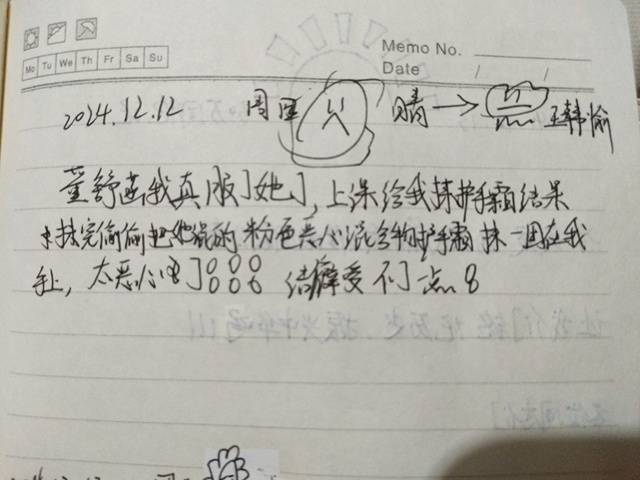 Memo No.
Mo Tu We Th Fr Sa Su
Date / /
2024.12.12 周四 晴 → 王韩愉
董舒涵我真服了她了,上课给我抹护手霜结果
抹完偷偷把她混的粉色恶心混合物护手霜抹一团在我
手上,太恶心了 洁癖受不了一点